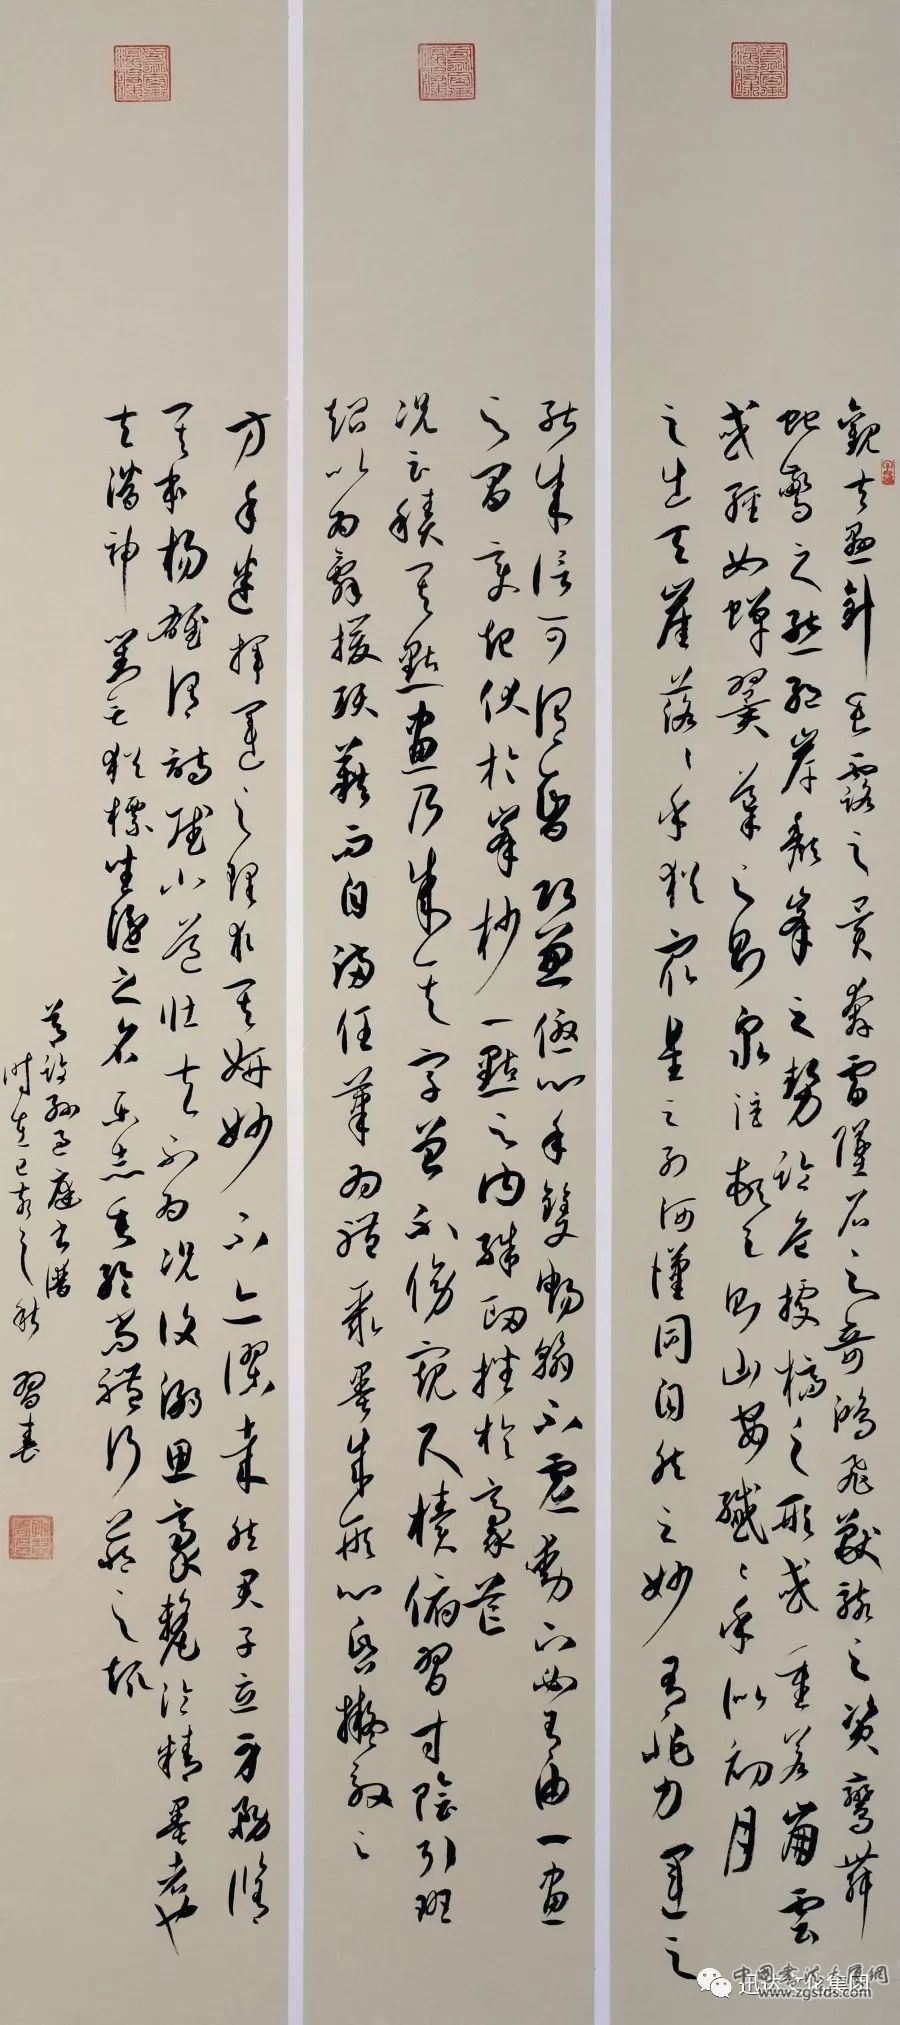 觀夫懸針垂露之異奔雷墜石之奇鴻飛獸駭之資鸞舞
蛇驚之態絕岸頹峯之勢臨危據槁之形或重若崩雲
或輕如蟬翼導之則泉注頓之則山安纖〻乎似初月
之出天崖落〻乎猶眾星之列河漢同自然之妙有非力運之
能成信可謂智巧兼優心手雙暢翰不虛動下必有由一畫
之間變起伏於峯杪一點之內殊衄挫於豪芒
況云積其點畫乃成其字曾不傍窺尺牘俯習寸陰引班
超以為辭援項籍而自滿任筆為體聚墨成形心昏擬效之
方手迷揮運之理求其妍妙不亦謬哉然君子立身務脩
其本楊雄謂詩賦小道壯夫不為況復溺思豪氂淪精墨者也
夫潛神對弈猶標坐隱之名樂志垂綸尚體行藏之趣
節臨孫過庭書譜
時在己亥之秋 習春
中國書法大展網
www.zgsfds.com